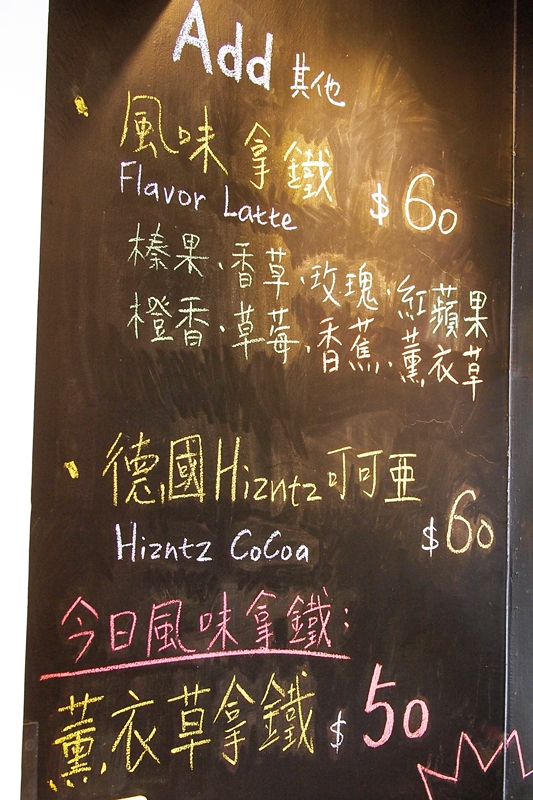 Add 其他
風味拿鐵
Flavor Latte $60
榛果、香草、玫瑰、紅蘋果
橙香、草莓、香蕉、薰衣草
德國Hizntz可可亞
Hizntz CoCoa $60
今日風味拿鐵:
薰衣草拿鐵 $50